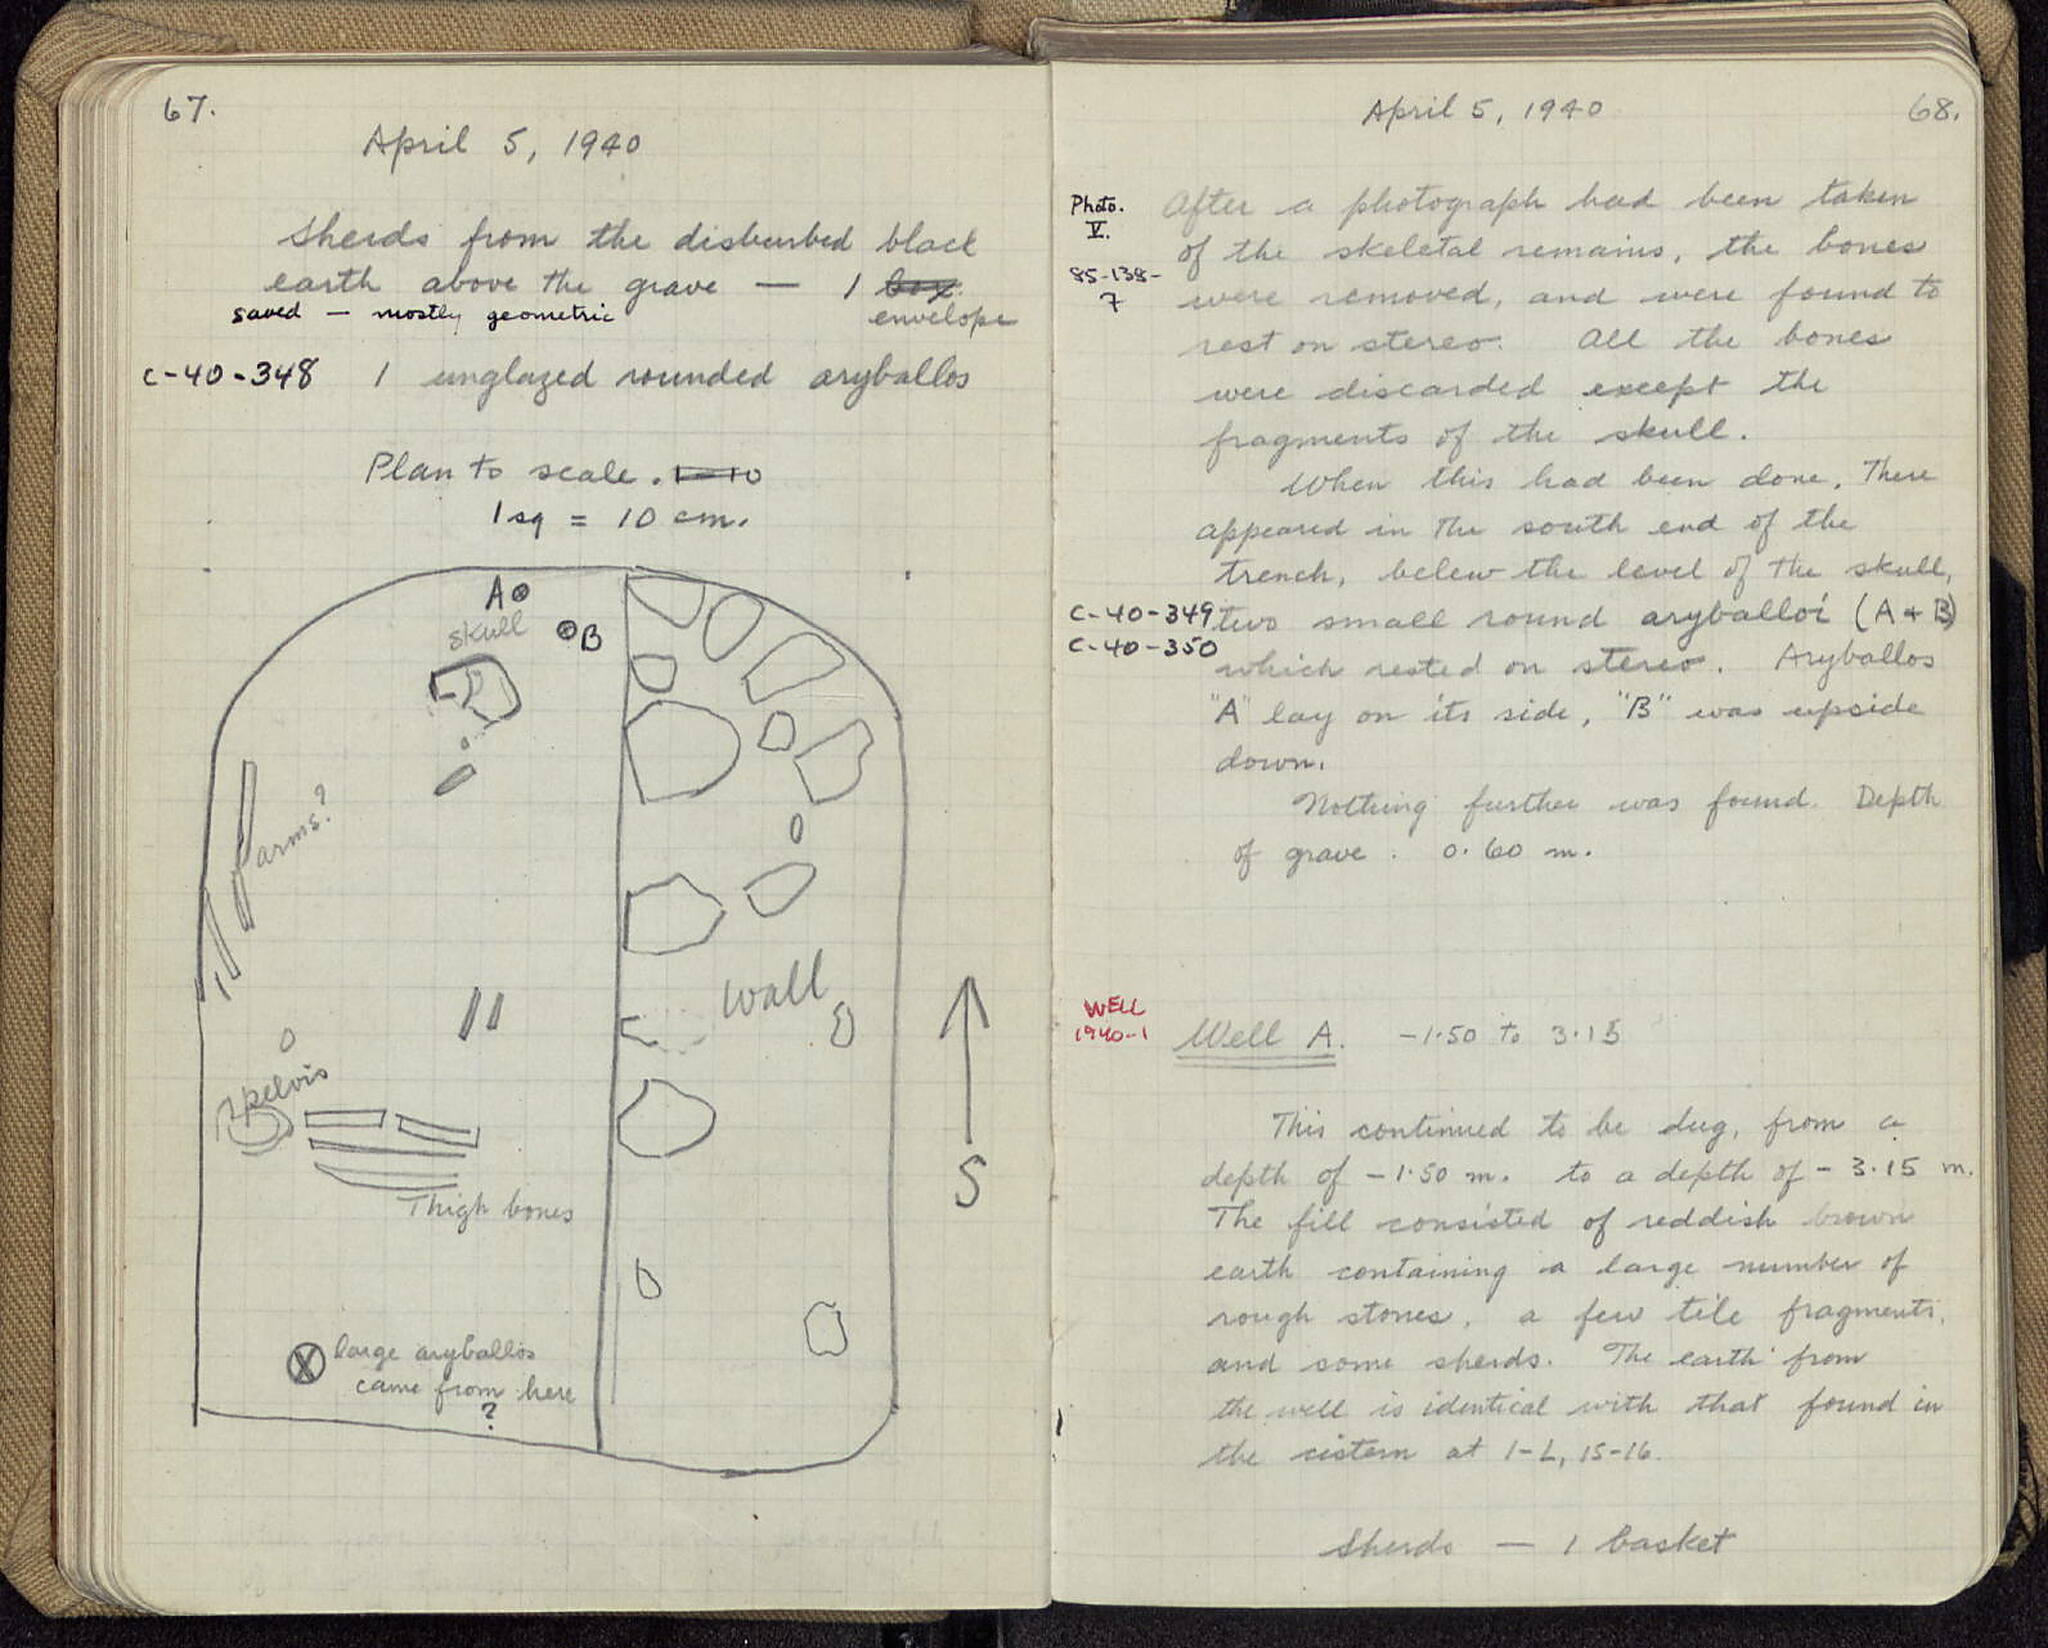 67.
April 5, 1940
Sherds from the disturbed black
earth above the grave — 1 box
envelope
saved — mostly geometric
C-40-348 1 unglazed rounded aryballos
Plan to scale. 1-10
1 sq = 10 cm.
A
skull
B
arms?
wall
pelvis
Thigh bones
S
large aryballos
came from here
?
April 5, 1940
68.
Photo.
V.
85-138-
7
After a photograph had been taken
of the skeletal remains, the bones
were removed, and were found to
rest on stereo. All the bones
were discarded except the
fragments of the skull.
When this had been done, There
appeared in the south end of the
trench, below the level of the skull,
C-40-349 two small round aryballoi (A + B)
C-40-350
which rested on stereo. Aryballos
"A" lay on its side, "B" was upside
down.
Nothing further was found. Depth
of grave. 0.60 m.
WELL
1940-1
Well A. -1.50 to 3.15
This continued to be dug, from a
depth of -1.50 m. to a depth of -3.15 m.
The fill consisted of reddish brown
earth containing a large number of
rough stones, a few tile fragments,
and some sherds. The earth from
the well is identical with that found in
the cistern at 1-L, 15-16.
Sherds — 1 basket